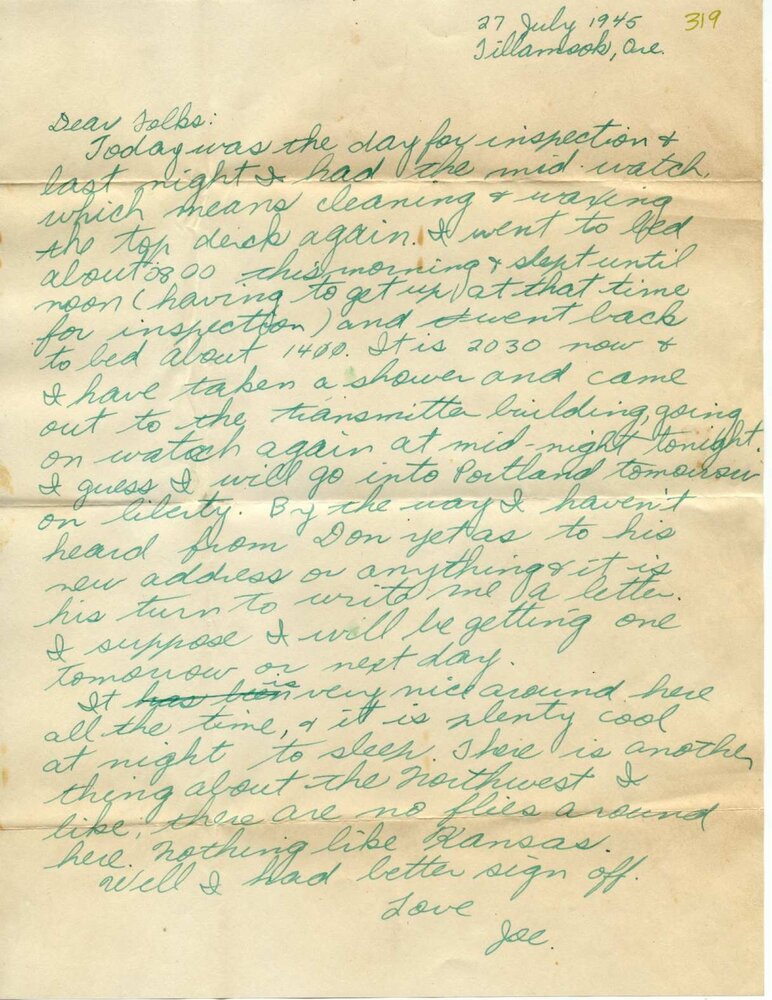 27 July 1945 319
Tillamook, Ore.
Dear Folks:
Today was the day for inspection &
last night I had the mid watch,
which means cleaning & waxing
the top deck again. I went to bed
about 0800 this morning & slept until
noon (having to get up at that time
for inspection) and went back
to bed about 1400. It is 2030 now &
I have taken a shower and came
out to the transmitter building, going
on watch again at mid-night tonight.
I guess I will go into Portland tomorrow
on liberty. By the way I haven't
heard from Don yet as to his
new address or anything & it is
his turn to write me a letter.
I suppose I will be getting one
tomorrow or next day.
It has been is very nice around here
all the time, & it is plenty cool
at night to sleep. There is another
thing about the Northwest I
like, there are no flies around
here. Nothing like Kansas.
Well I had better sign off.
Love
Joe.